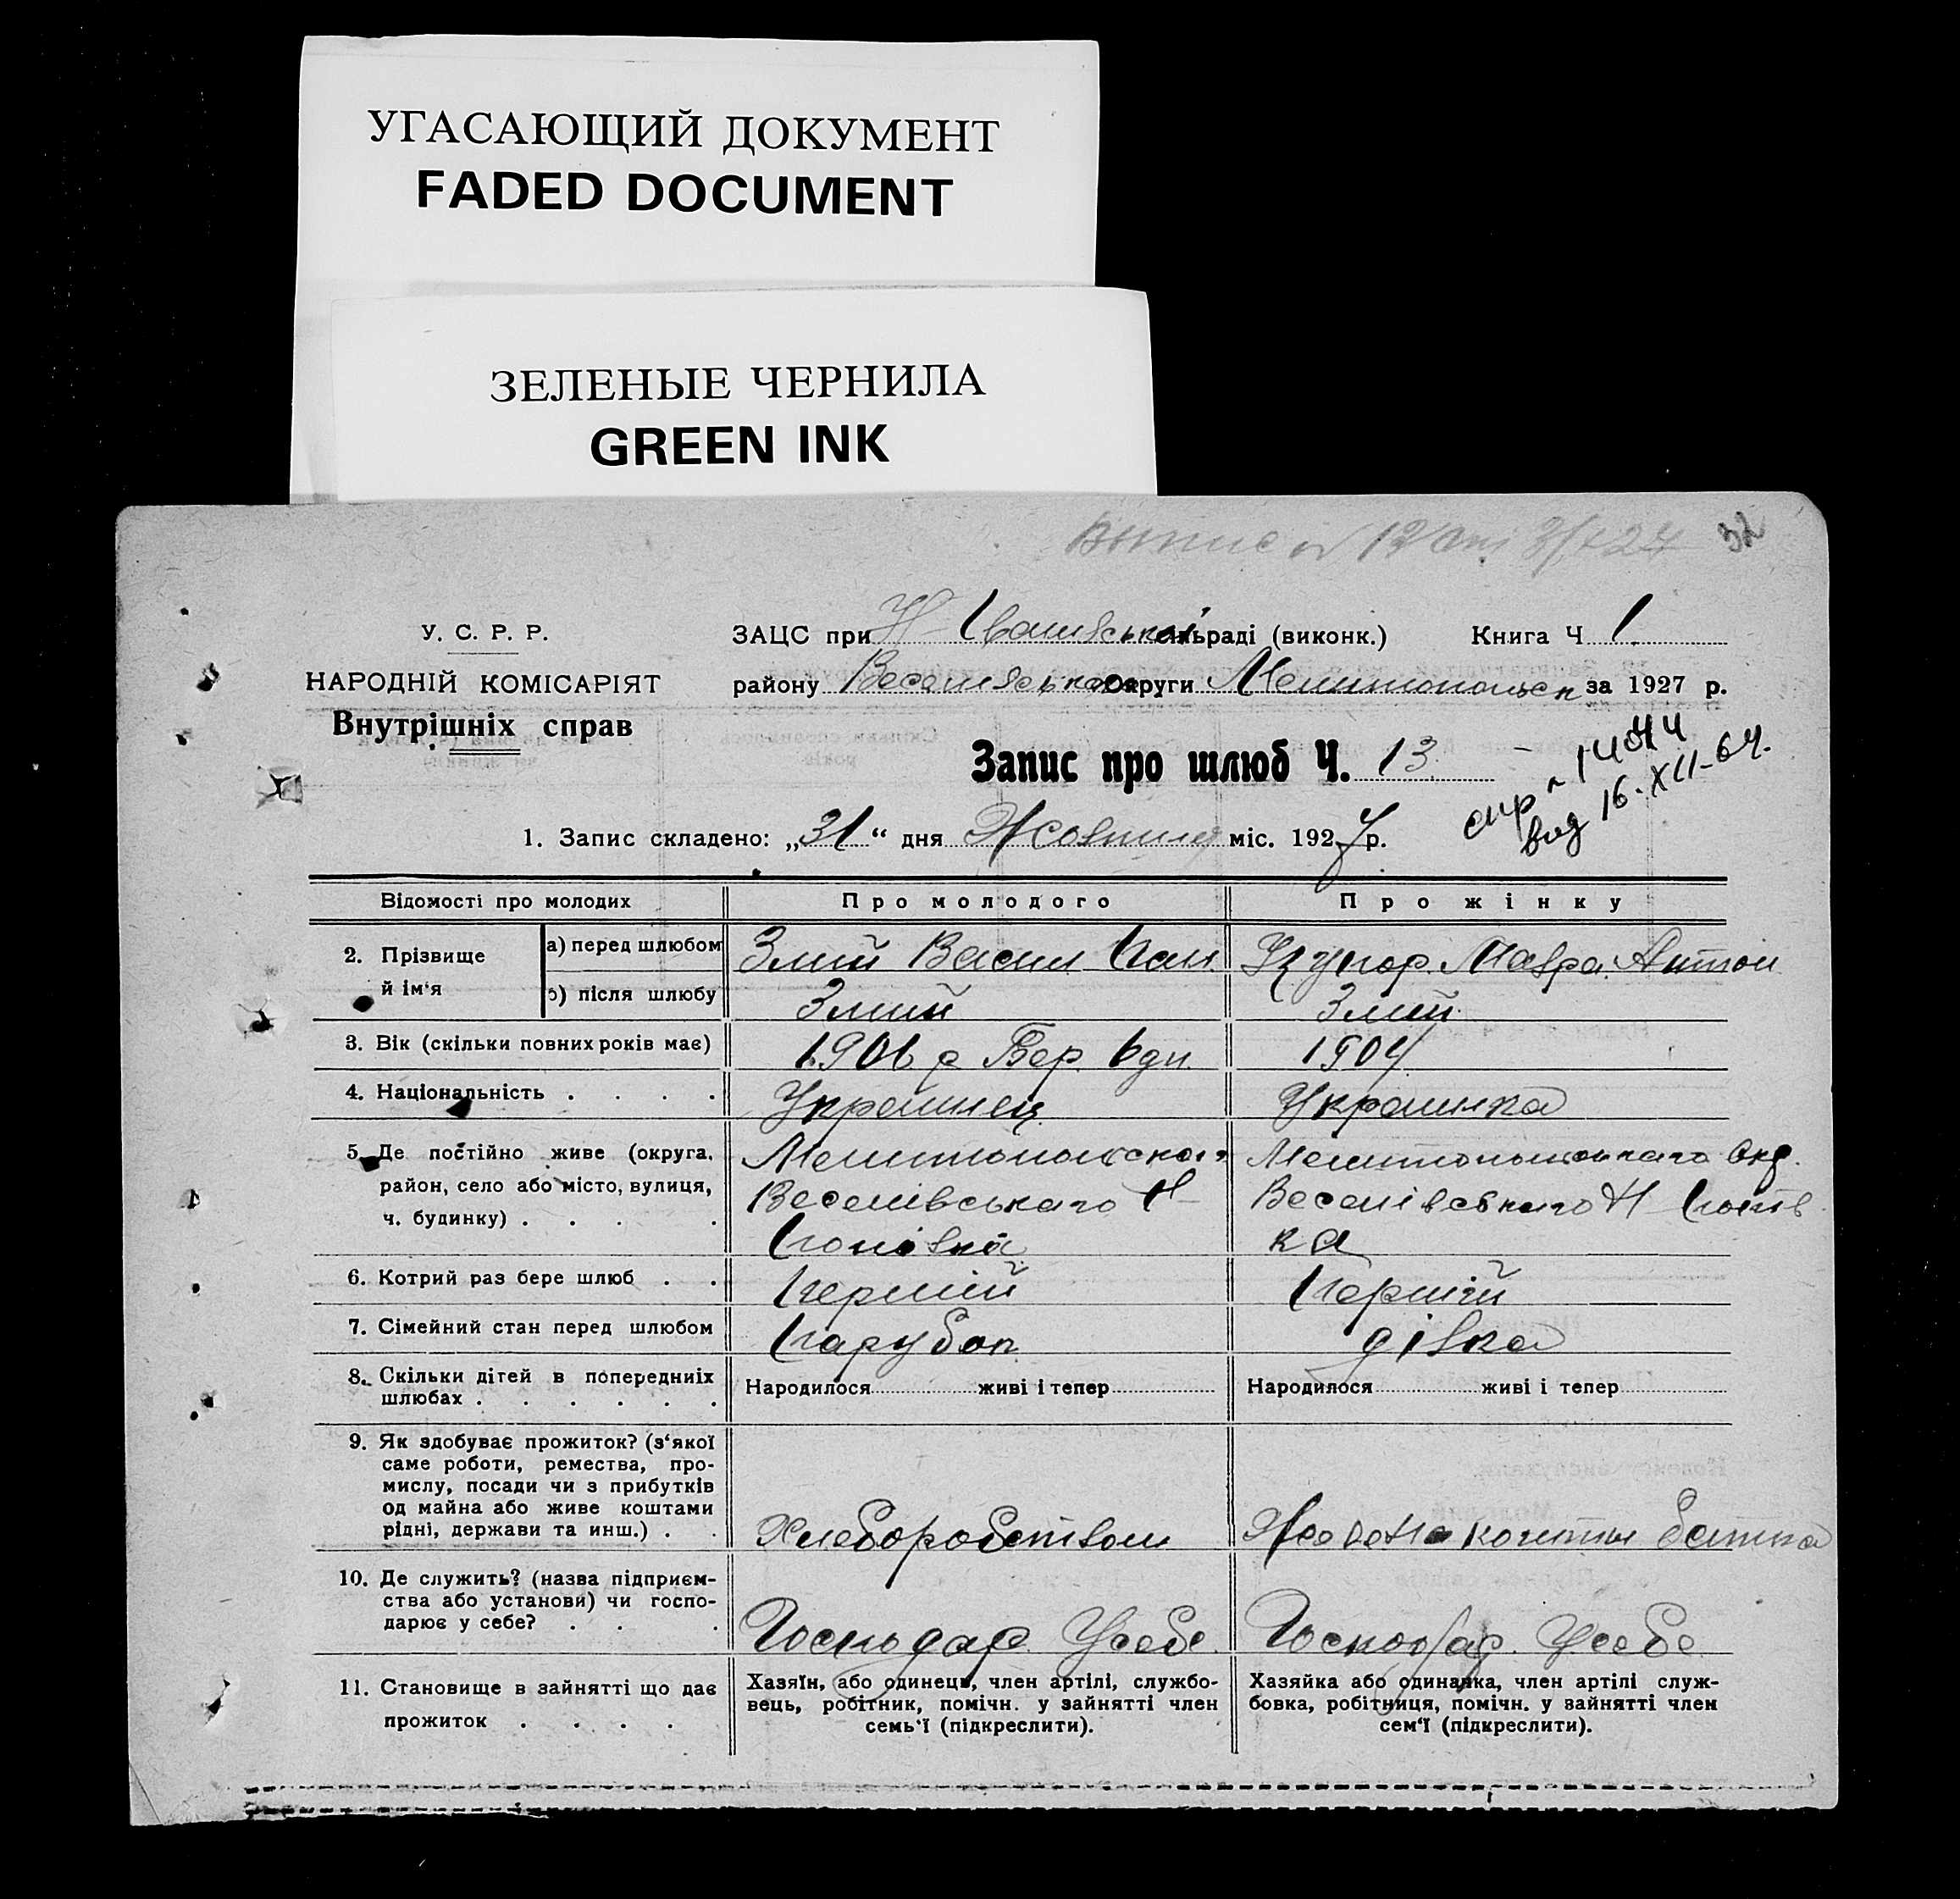 УГАСАЮЩИЙ ДОКУМЕНТ
FADED DOCUMENT
ЗЕЛЕНЫЕ ЧЕРНИЛА
GREEN INK
32
У. С. Р. Р.
НАРОДНІЙ КОМІСАРІЯТ
Внутрішніх справ
ЗАЦС при Н раді (виконк.) Книга Ч 1
району Веселівського Округи Мелитопольск за 1927 р.
Запис про шлюб Ч. 13
спр
від 16-XII-64.
1. Запис складено: „31“ дня Жовтня міс. 1927 р.
Відомості про молодих Про молодого Про жінку
2. Прізвище й ім'я
а) перед шлюбом Змий Васил Мавра Антон
б) після шлюбу Змий Змий
3. Вік (скільки повних років має) 1906 р Бер. 6 дн. 1904
4. Національність . . . . Украинец Украинка
5. Де постійно живе (округа, район, село або місто, вулиця, ч. будинку) . . . .
Мелитопольского
Веселівського Н
Мелитопольського Окр.
Веселівського Н
ка
6. Котрий раз бере шлюб . . Перший Перший
7. Сімейний стан перед шлюбом Парубок дівка
8. Скільки дітей в попередніх шлюбах . . . . . . Народилося живі і тепер Народилося живі і тепер
9. Як здобуває прожиток? (з'якої
саме роботи, ремества, про-
мислу, посади чи з прибутків
од майна або живе коштами
рідні, держави та инш.) . .
Хлеборобством
Живе На кошты батька
10. Де служить? (назва підприєм-
ства або установи) чи госпо-
дарює у себе? . . .
Господар. Усебе.
Господар. Усебе
11. Становище в зайнятті що дає
прожиток . . . .
Хазяїн, або одинець, член артілі, службо-
вець, робітник, помічн. у зайнятті член
семь'ї (підкреслити).
Хазяйка або одинака, член артілі служ-
бовка, робітниця, помічн. у зайнятті член
сем'ї (підкреслити).